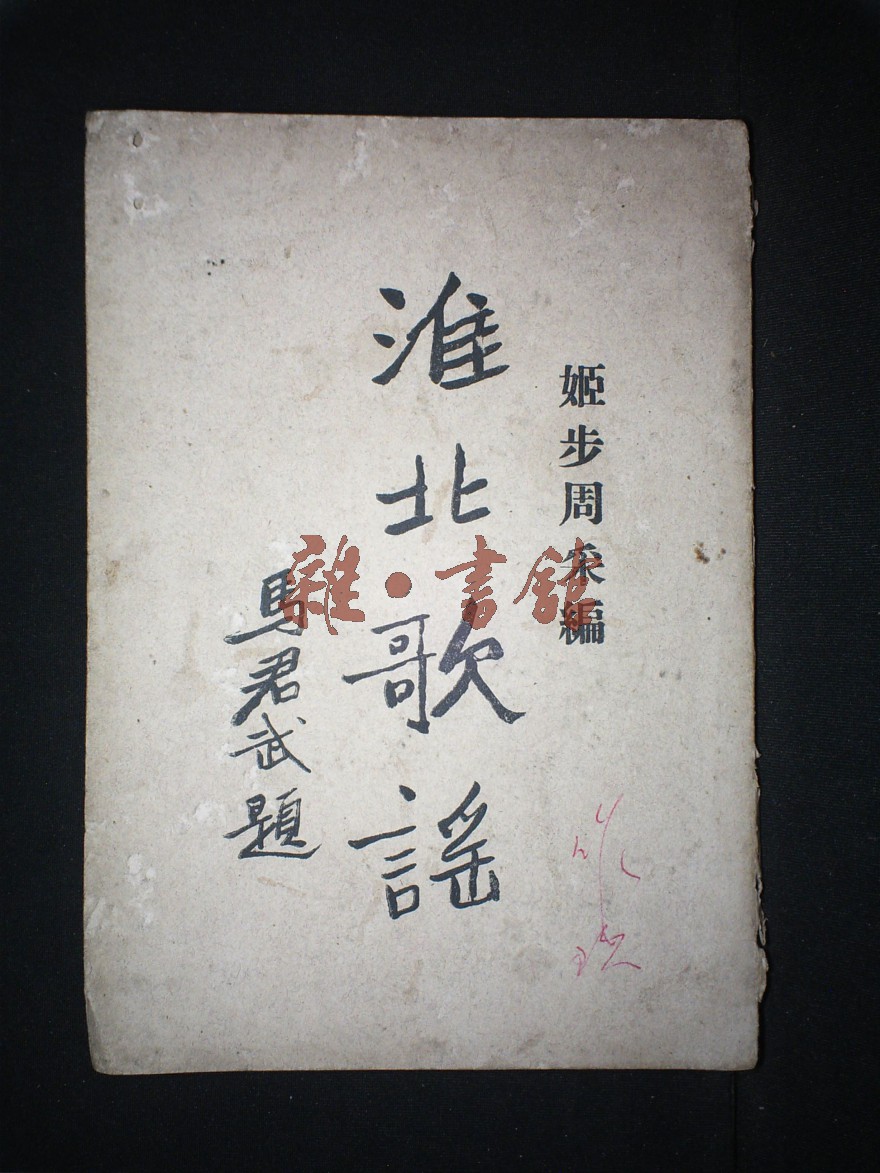 姬步周采編
淮北歌謠
馬君武題
雜·書館